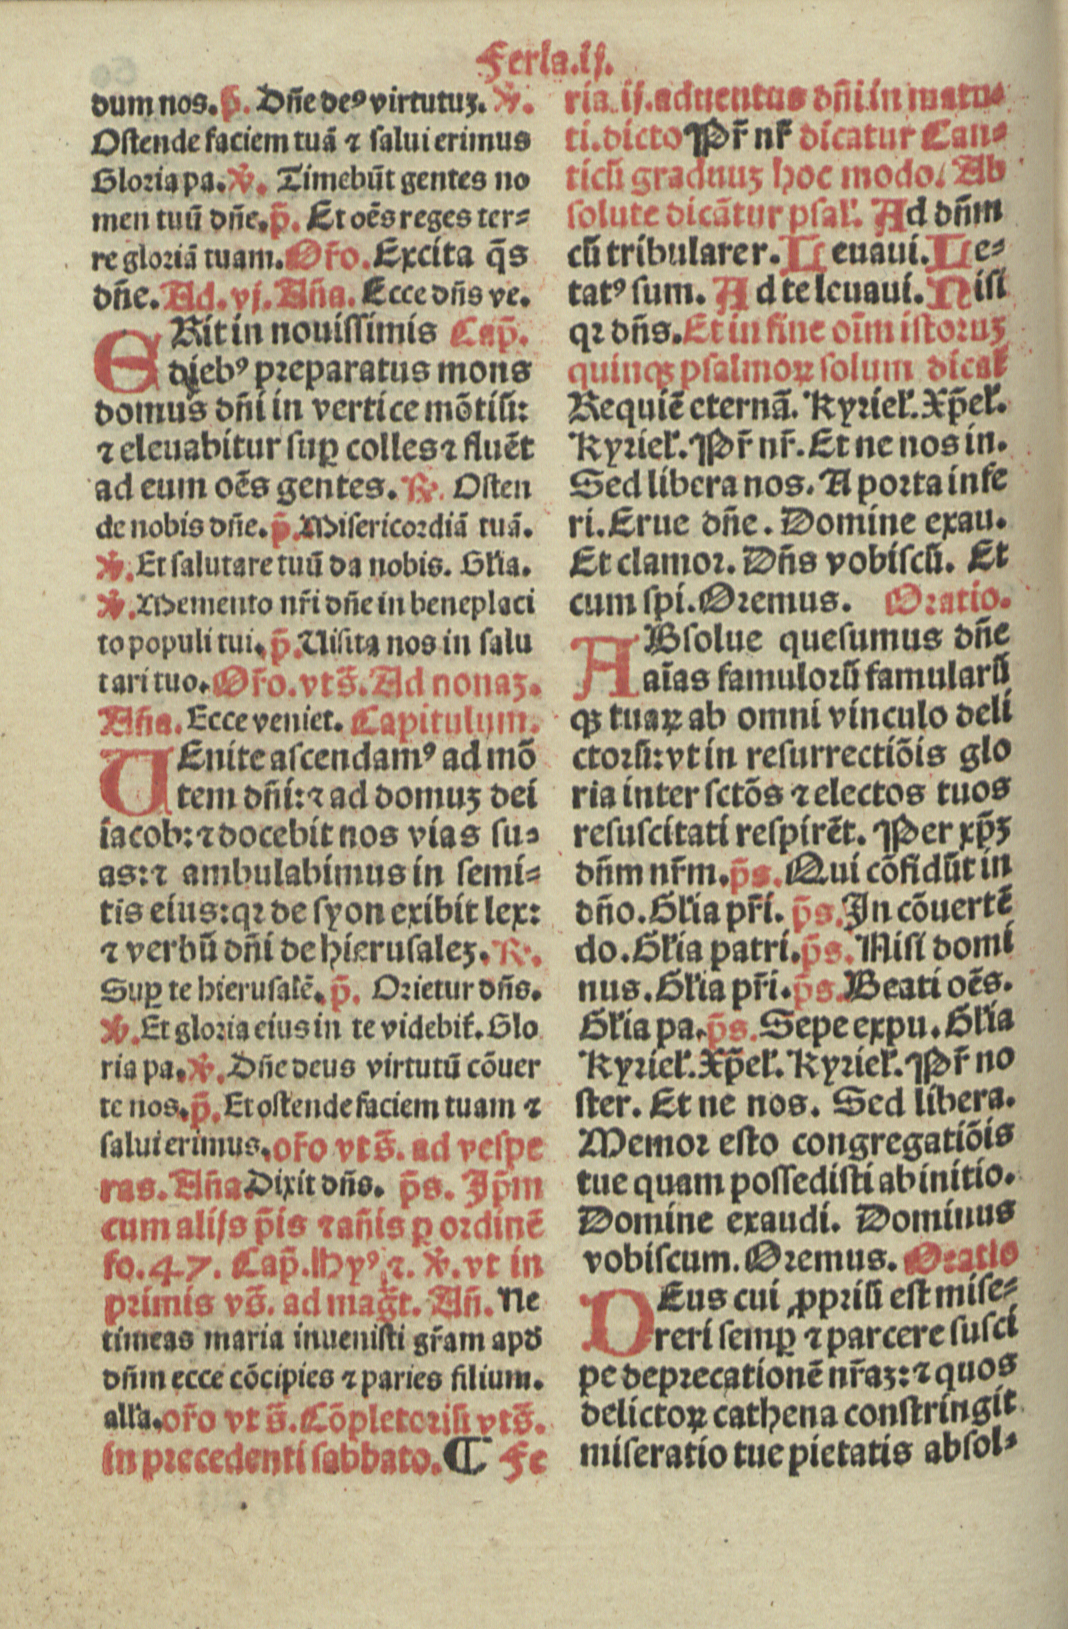 Feria.ij.
dum nos. p̃. Dñe deꝰ virtutuȝ. ℣.
Ostende faciem tuã ⁊ salui erimus
Gloria pa. ℣. Timebũt gentes no
men tuũ dñe. p̃. Et oẽs reges ter⸗
re gloriã tuam. Or̃o. Excita q̃s
dñe. Ad. vj. Aña. Ecce dñs ve.
ERit in nouissimis Cap̃.
diebꝰ preparatus mons
domus dñi in vertice mõtiũ:
⁊ eleuabitur suꝑ colles ⁊ fluẽt
ad eum oẽs gentes. ℟. Osten
de nobis dñe. p̃. Misericordiã tuã.
℣. Et salutare tuũ da nobis. Gl̃ia.
℣. Memento nr̃i dñe in beneplaci
to populi tui. p̃. Uisita nos in salu
tari tuo. Or̃o. vts̃. Ad nonaȝ.
Aña. Ecce veniet. Capitulum.
UEnite ascendamꝰ ad mõ
tem dñi: ⁊ ad domuȝ dei
iacob: ⁊ docebit nos vias su⸗
as: ⁊ ambulabimus in semi⸗
tis eius: qꝛ de syon exibit lex:
⁊ verbũ dñi de hierusaleȝ. ℟.
Suꝑ te hierusalẽ. p̃. Orietur dñs.
℣. Et gloria eius in te videbit̃. Glo
ria pa. ℣. Dñe deus virtutũ cõuer
te nos. p̃. Et ostende faciem tuam ⁊
salui erimus. or̃o vts̃. ad vespe
ras. Aña Dixit dñs. p̃s. Ip̃m
cum alijs p̃is ⁊ añis ꝑ ordinẽ
fo. 47. Cap̃. Hyꝰ. ⁊. ℣. vt in
primis vs̃. ad mag̃t. Añ. Ne
timeas maria inuenisti gr̃am apð
dñm ecce cõcipies ⁊ paries filium.
all̃a. or̃o vt s̃. Cõpletoriũ vts̃.
in precedenti sabbato. ¶ Fe
ria. ij. aduentus dñi in matu⸗
ti. dicto Pr̃ nr̃ dicatur Can⸗
ticũ graduuȝ hoc modo. Ab
solute dicãtur psal̃. Ad dñm
cũ tribularer. Leuaui. Le⸗
tatꝰ sum. Ad te leuaui. Nisi
qꝛ dñs. Et in fine oĩm istoruȝ
quinqꝫ psalmoꝝ solum dicat̃
Requiẽ eternã. Kyriel̃. Xp̃el̃.
Kyriel̃. Pr̃ nr̃. Et ne nos in.
Sed libera nos. A porta infe
ri. Erue dñe. Domine exau.
Et clamor. Dñs vobiscũ. Et
cum spi. Oremus. Oratio.
ABsolue quesumus dñe
aĩas famulorũ famularũ
qꝫ tuaꝝ ab omni vinculo deli
ctorũ: vt in resurrectiõis glo
ria inter sctõs ⁊ electos tuos
resuscitati respirẽt. Per xp̃ȝ
dñm nr̃m. p̃s. Qui cõfidũt in
dño. Gl̃ia pr̃i. p̃s. In cõuertẽ
do. Gl̃ia patri. p̃s. Nisi domi
nus. Gl̃ia pr̃i. p̃s. Beati oẽs.
Gl̃ia pa. p̃s. Sepe expu. Gl̃ia
Kyriel̃. Xp̃el̃. Kyriel̃. Pr̃ no
ster. Et ne nos. Sed libera.
Memor esto congregatiõis
tue quam possedisti ab initio.
Domine exaudi. Dominus
vobiscum. Oremus. Oratio
DEus cui ꝓpriũ est mise⸗
reri semꝑ ⁊ parcere susci
pe deprecationẽ nr̃aȝ: ⁊ quos
delictoꝝ cathena constringit
miseratio tue pietatis absol⸗